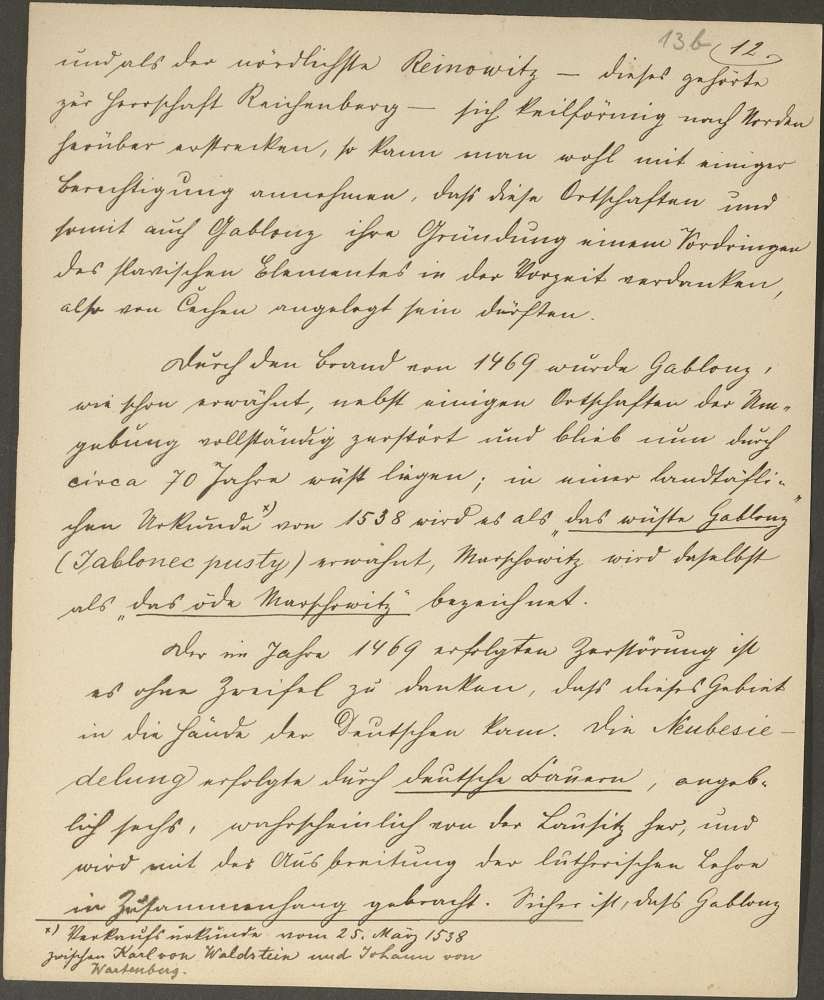 13b 12.
und als der nördlichste Reinowitz — dieses gehörte
zur Herrschaft Reichenberg — sich keilförmig nach Norden
herüber erstrecken, so kann man wohl mit einiger
Berechtigung annehmen, daß diese Ortschaften und
somit auch Gablonz ihre Gründung einem Vordringen
des slavischen Elementes in der Vorzeit verdanken,
also von Čechen angelegt sein dürften.
Durch den Brand von 1469 wurde Gablonz,
wie schon erwähnt, nebst einigen Ortschaften der Um-
gebung vollständig zerstört und blieb nun durch
circa 70 Jahre wüst liegen; in einer landtäfli-
chen Urkunde x) von 1538 wird es als „das wüste Gablonz"
(Jablonec pustý) erwähnt, Marschowitz wird daselbst
als „das öde Marschowitz" bezeichnet.
Der im Jahre 1469 erfolgten Zerstörung ist
es ohne Zweifel zu danken, daß dieses Gebiet
in die Hände der Deutschen kam. Die Neubesie-
delung erfolgte durch deutsche Bauern, angeb-
lich sechs, wahrscheinlich von der Lausitz her, und
wird mit der Ausbreitung der lutherischen Lehre
in Zusammenhang gebracht. Sicher ist, daß Gablonz
x) Verkaufsurkunde vom 25. März 1538
zwischen Karl von Waldstein und Johann von
Wartenberg.